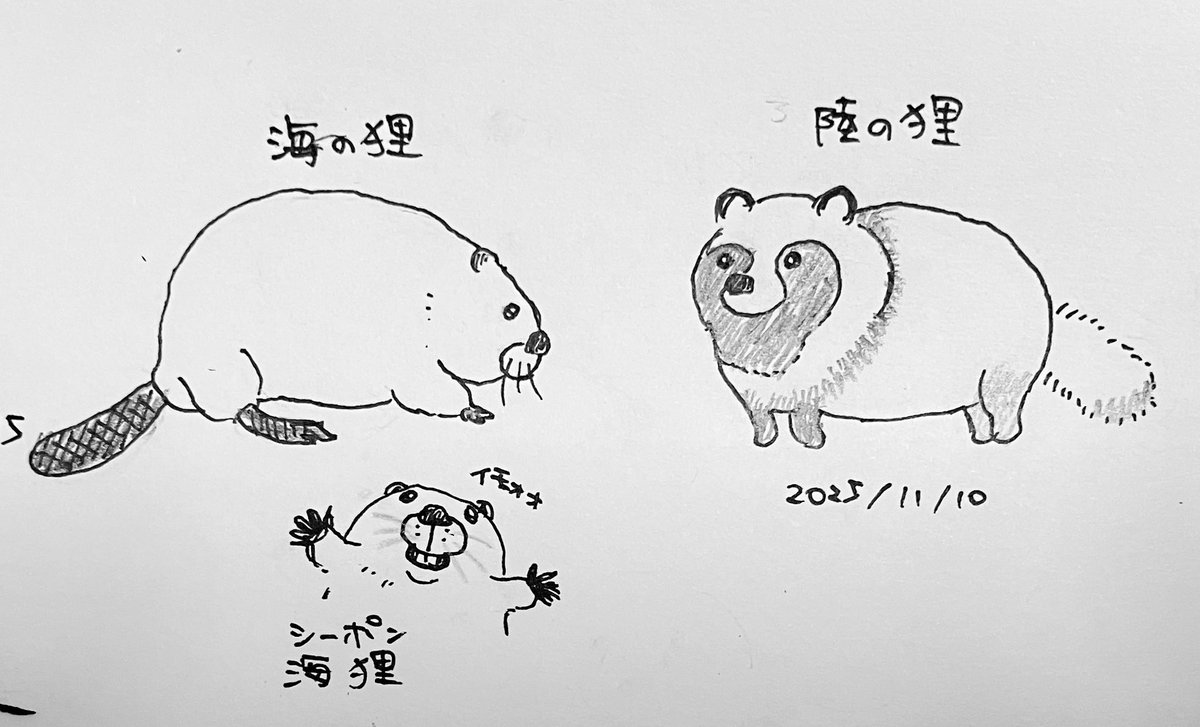 海の狸
陸の狸
2025/11/10
イモォォ
シーポン
海狸